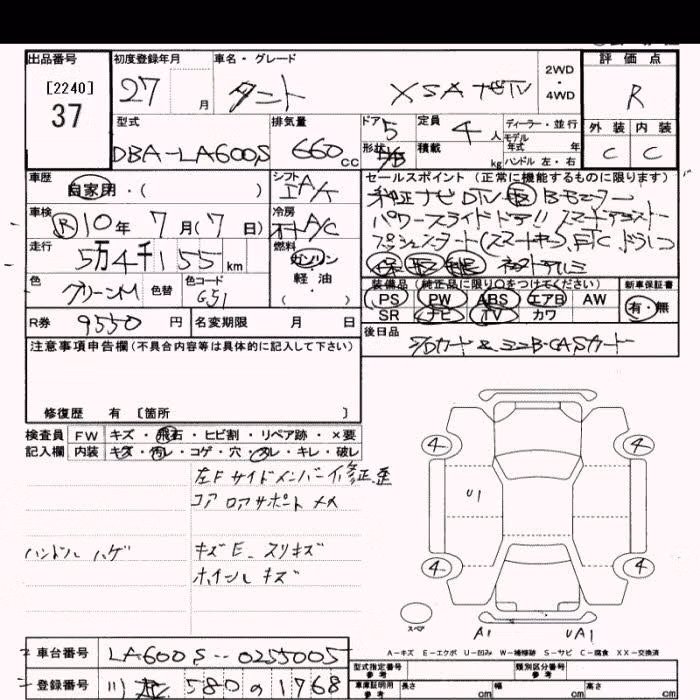 出品番号 初度登録年月 車名・グレード 2WD・4WD 評価点
[2240]
37 27 月 タント XSA ナビTV R
型式 排気量 ドア 5 定員 4 人 ディーラー・並行 外装 内装
DBA-LA600S 660 cc 形状 5/B 積載 kg モデル年式 年 ハンドル 左・右 C C
車歴 自家用・( ) シフト IA/T セールスポイント (正常に機能するものに限ります)
純正ナビ DTV Bモニター
車検 R10年 7月(7日) 冷房 A/C
パワースライドドア!! スマートアシスト
走行 5万4千155km 燃料 ガソリン 軽油 ( )
プッシュスタート(スマートキー)、ETC、ドラレコ
色 グリーンM 色替 色コード G51
装備品 (純正品に限り○をつけてください) 新車保証書
PS PW ABS エアB AW 有・無
SR ナビ TV カワ
R券 9550 円 名変期限 月 日
後日品 SDカード & ミニB-CASカード
注意事項申告欄 (不具合内容等は具体的に記入して下さい)
修復歴 有 [箇所 ]
検査員 FW キズ・飛石・ヒビ割・リペア跡・×要
記入欄 内装 キズ・汚レ・コゲ・穴・スレ・キレ・破レ
左Fサイドメンバー修正歪
コア ロアサポート メス
ハンドル ハゲ キズE. スリキズ
ホイール キズ
4 4
U1
4 4
スペア A1 UA1
A-キズ E-エクボ U-凹み W-補修跡 S-サビ C-腐食 XX-交換済
車台番号 LA600S-0255005
型式指定番号 参考 類別区分番号 参考
登録番号 580 の 1768
車庫証明用 参考 長さ cm 幅 cm 高さ cm